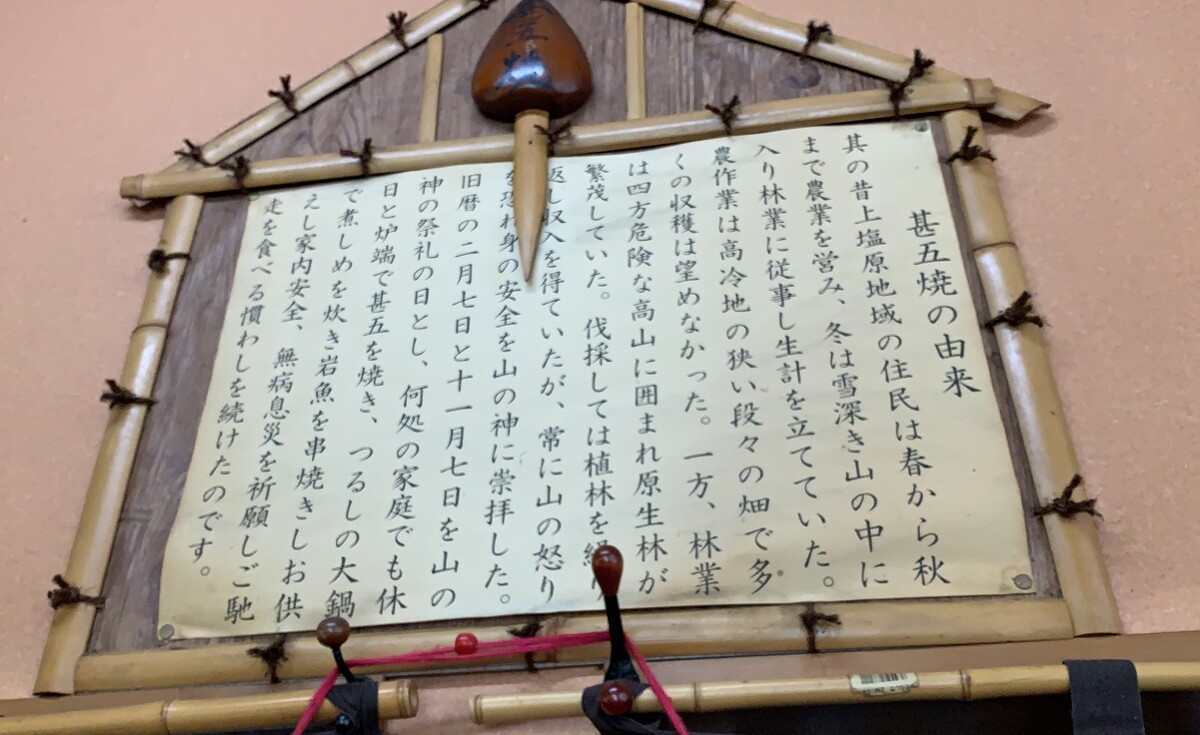 甚五焼の由来
其の昔上塩原地域の住民は春から秋
まで農業を営み、冬は雪深き山の中に
入り林業に従事し生計を立てていた。
農作業は高冷地の狭い段々の畑で多
くの収穫は望めなかった。一方、林業
は四方危険な高山に囲まれ原生林が
繁茂していた。伐採しては植林を繰り
返し収入を得ていたが、常に山の怒り
を恐れ身の安全を山の神に崇拝した。
旧暦の二月七日と十一月七日を山の
神の祭礼の日とし、何処の家庭でも休
日と炉端で甚五を焼き、つるしの大鍋
で煮しめを炊き岩魚を串焼きしお供
えし家内安全、無病息災を祈願しご馳
走を食べる慣わしを続けたのです。